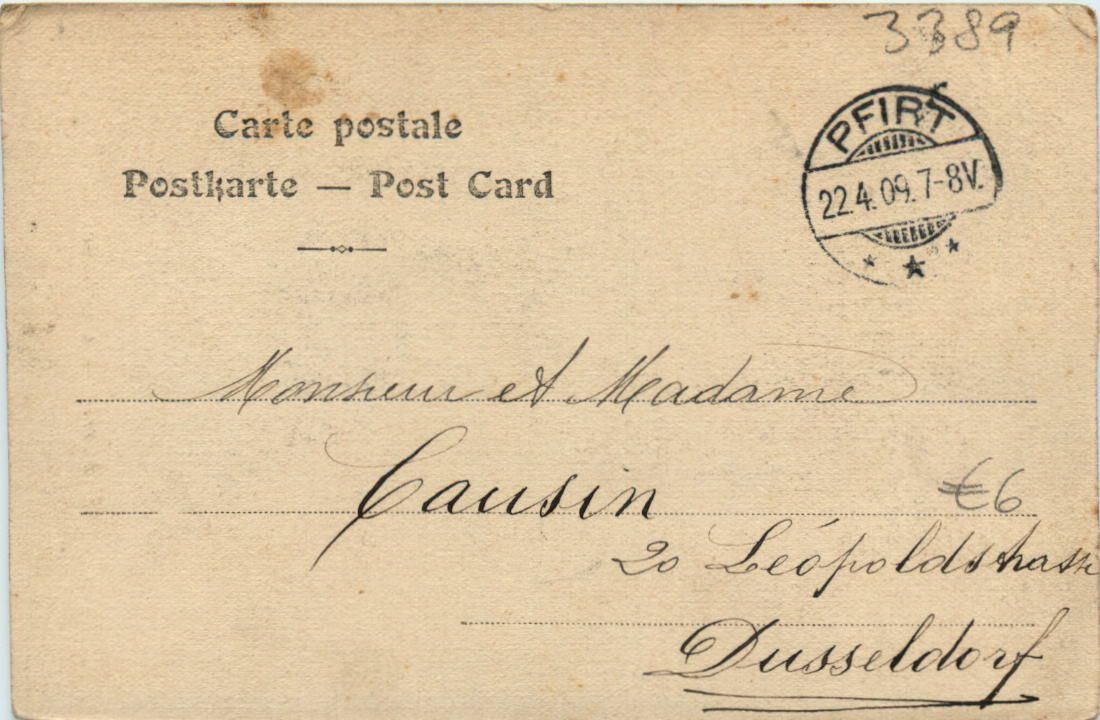 3389
Carte postale
Postkarte — Post Card
PFIRT
22.4.09.7-8V.
Monsieur et Madame
Causin
€6
20 Léopoldstrasse
Dusseldorf